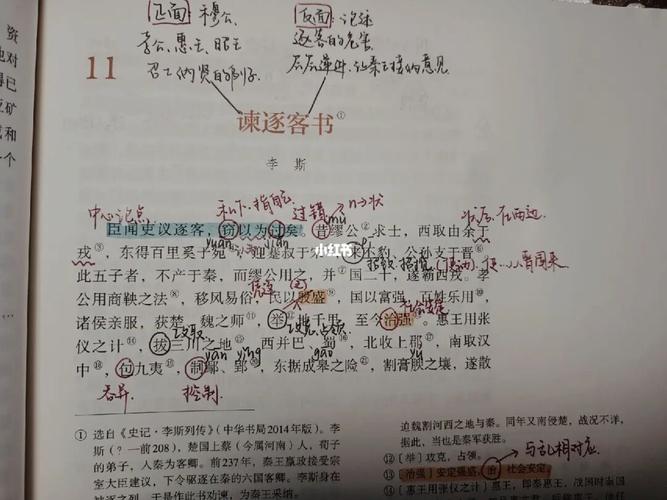 正面：穆公、
孝公、惠王、昭王
召士纳贤的
反面：论述
逐客的危害
层层递进，让秦王接纳意见
资
也对
得已
矿
或和
一个
11
谏逐客书①
李斯
中心论点
私下，指自己
过错
n→状
mù
状后，在西边
臣闻吏议逐客，窃以为过矣。昔缪公②求士，西取由余于
戎③，东得百里奚于宛，迎蹇叔于宋，来丕豹、公孙支于晋
yuān
jiǎn
小红书
晋国来
此五子者，不产于秦，而缪公用之，并国二十，遂霸西戎。孝
公用商鞅之法，移风易俗，民以殷盛，国以富强，百姓乐用，
诸侯亲服，获楚、魏之师，举地千里，至今治强。惠王用张
攻取
攻克，占领
社会安定
仪之计，拔三川之地，西并巴、蜀，北收上郡，南取汉
yān yǐng
gāo
yú
中，包九夷，制鄢、郢，东据成皋之险，割膏腴之壤，遂散
吞并
控制
① 选自《史记·李斯列传》（中华书局2014年版）。李
斯（？—前208），楚国上蔡（今属河南）人，荀子
的弟子，入秦为客卿。前237年，秦王嬴政接受宗
室大臣建议，下令驱逐在秦的六国客卿。李斯身在
被逐之列，于是作此书劝谏，为秦王采纳。
迫魏割河西之地与秦。同年又南侵楚，战况不详，
据此，当也是秦军获胜。
与乱相对应
⑫〔举〕攻克，占领。
⑬〔治强〕安定强盛。治，社会安定。
⑭〔惠王用张仪之计〕惠王，即秦惠王，战国时秦国